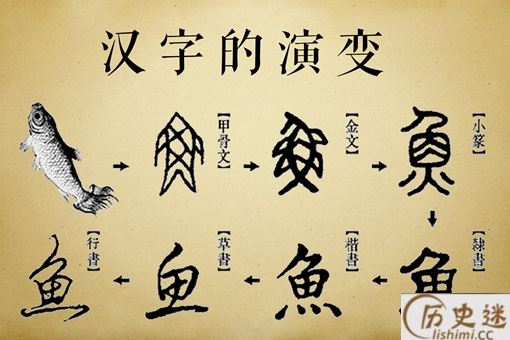 汉字的演变
【甲骨文】
【金文】
【小篆】
魚
【隸書】
魚
【楷書】
魚
【草書】
鱼
【行書】
鱼
历史迷
lishimi.cc